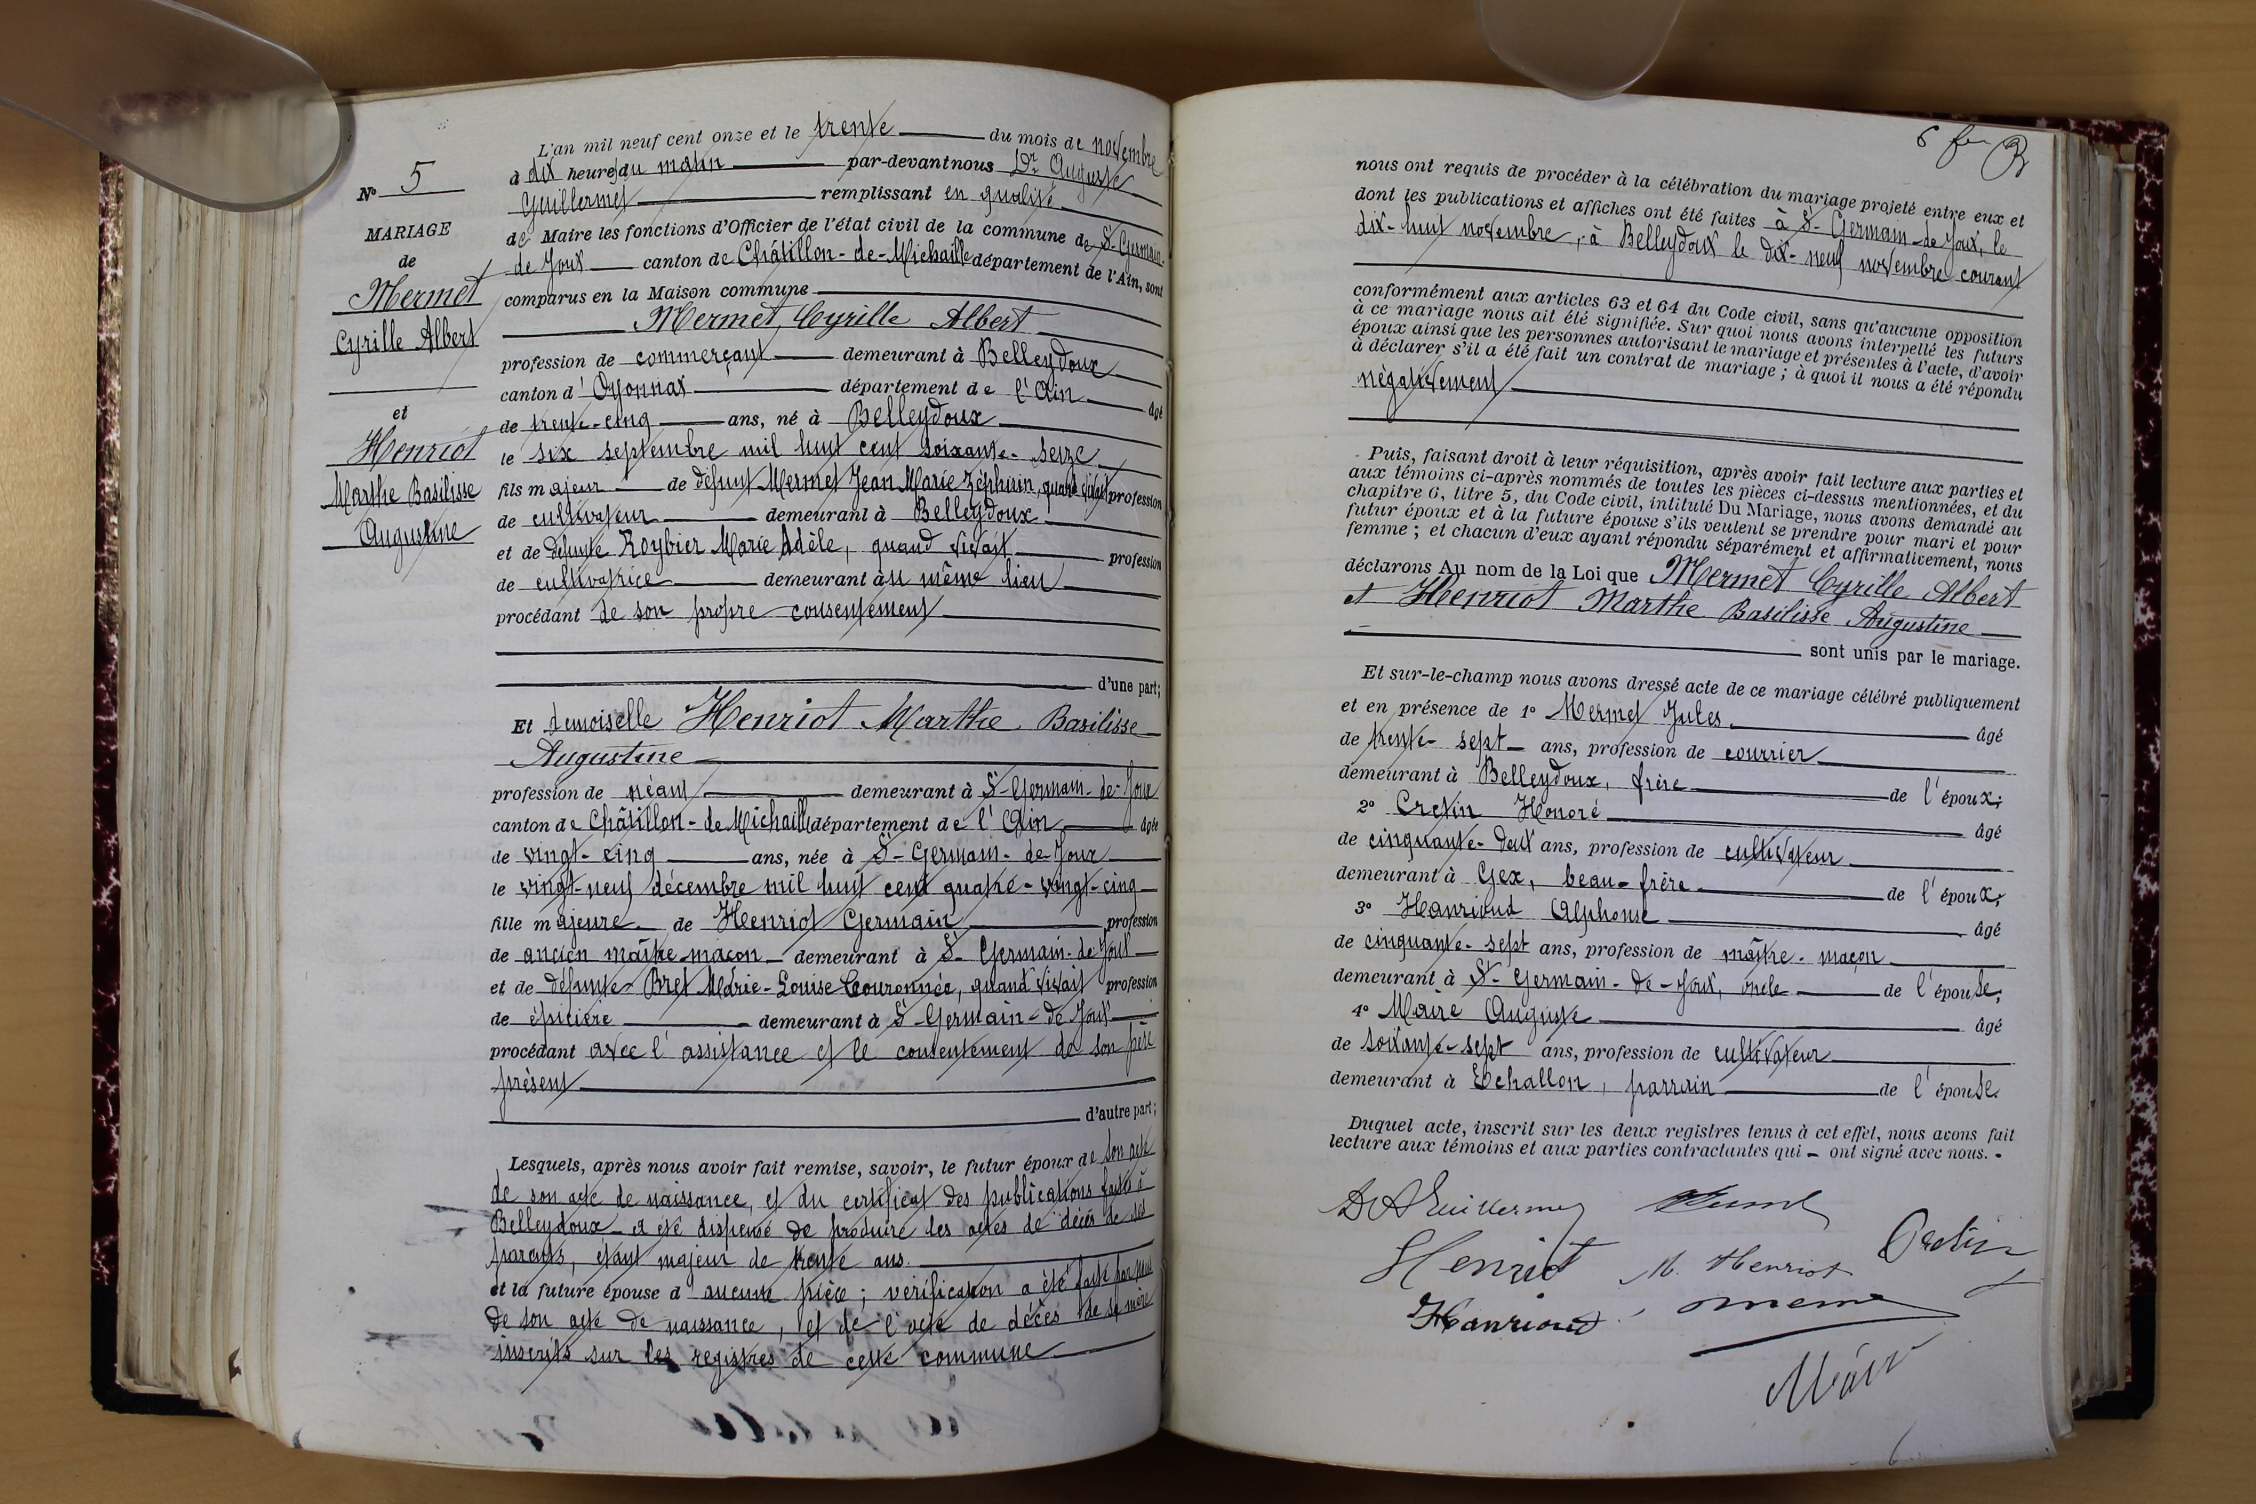 N° 5
MARIAGE
de
Mermet
Cyrille Albert
et
Henriot
Marthe Basilisse
Augustine
L'an mil neuf cent onze et le trente du mois de novembre
à dix heures du matin par-devant nous Dr Auguste
Guillermet remplissant en qualité
de Maire les fonctions d'Officier de l'état civil de la commune de St-Germain-
de Joux canton de Châtillon-de-Michaille département de l'Ain, sont
comparus en la Maison commune
Mermet, Cyrille Albert
profession de commerçant demeurant à Belleydoux
canton d'Oyonnax département de l'Ain âgé
de trente-cinq ans, né à Belleydoux
le six septembre mil huit cent soixante-seize
fils majeur de défunt Mermet Jean Marie Zéphirin, quand vivait profession
de cultivateur demeurant à Belleydoux
et de défunte Roybier Marie Adèle, quand vivait profession
de cultivatrice demeurant au même lieu
procédant de son propre consentement
d'une part;
Et demoiselle Henriot Marthe Basilisse
Augustine
profession de néant demeurant à St-Germain-de-Joux
canton de Châtillon-de Michaille département de l'Ain âgée
de vingt-cinq ans, née à St-Germain-de-Joux
le vingt-neuf décembre mil huit cent quatre-vingt-cinq
fille majeure de Henriot Germain profession
de ancien maître maçon demeurant à St-Germain-de Joux
et de défunte Bret Marie-Louise Couronnée, quand vivait profession
de épicière demeurant à St-Germain-de Joux
procédant avec l'assistance et le consentement de son père
présent
d'autre part;
Lesquels, après nous avoir fait remise, savoir, le futur époux de son acte
de son acte de naissance, et du certificat des publications faites à
Belleydoux a été dispensé de produire les actes de décès de ses
parents, étant majeur de trente ans.
et la future épouse d'aucune pièce; vérification a été faite par nous
de son acte de naissance, et de l'acte de décès de sa mère
inscrits sur les registres de cette commune
6 fer
nous ont requis de procéder à la célébration du mariage projeté entre eux et
dont les publications et affiches ont été faites à St-Germain-de Joux, le
dix-huit novembre, à Belleydoux le dix-neuf novembre courant
conformément aux articles 63 et 64 du Code civil, sans qu'aucune opposition
à ce mariage nous ait été signifiée. Sur quoi nous avons interpellé les futurs
époux ainsi que les personnes autorisant le mariage et présentes à l'acte, d'avoir
à déclarer s'il a été fait un contrat de mariage; à quoi il nous a été répondu
négativement
Puis, faisant droit à leur réquisition, après avoir fait lecture aux parties et
aux témoins ci-après nommés de toutes les pièces ci-dessus mentionnées, et du
chapitre 6, titre 5, du Code civil, intitulé Du Mariage, nous avons demandé au
futur époux et à la future épouse s'ils veulent se prendre pour mari et pour
femme; et chacun d'eux ayant répondu séparément et affirmativement, nous
déclarons Au nom de la Loi que Mermet Cyrille Albert
et Henriot Marthe Basilisse Augustine
sont unis par le mariage.
Et sur-le-champ nous avons dressé acte de ce mariage célébré publiquement
et en présence de 1° Mermet Jules âgé
de trente-sept ans, profession de courrier
demeurant à Belleydoux, frère de l'époux;
2° Cretin Honoré âgé
de cinquante-deux ans, profession de cultivateur
demeurant à Gex, beau-frère de l'époux;
3° Hanrioud Alphonse âgé
de cinquante-sept ans, profession de maître-maçon
demeurant à St-Germain-de-Joux, oncle de l'épouse;
4° Maire Auguste âgé
de soixante-sept ans, profession de cultivateur
demeurant à Echallon, parrain de l'épouse.
Duquel acte, inscrit sur les deux registres tenus à cet effet, nous avons fait
lecture aux témoins et aux parties contractantes qui - ont signé avec nous. -
Dr A Guillermet
Henriot M. Henriot Cretin
Hanrioud